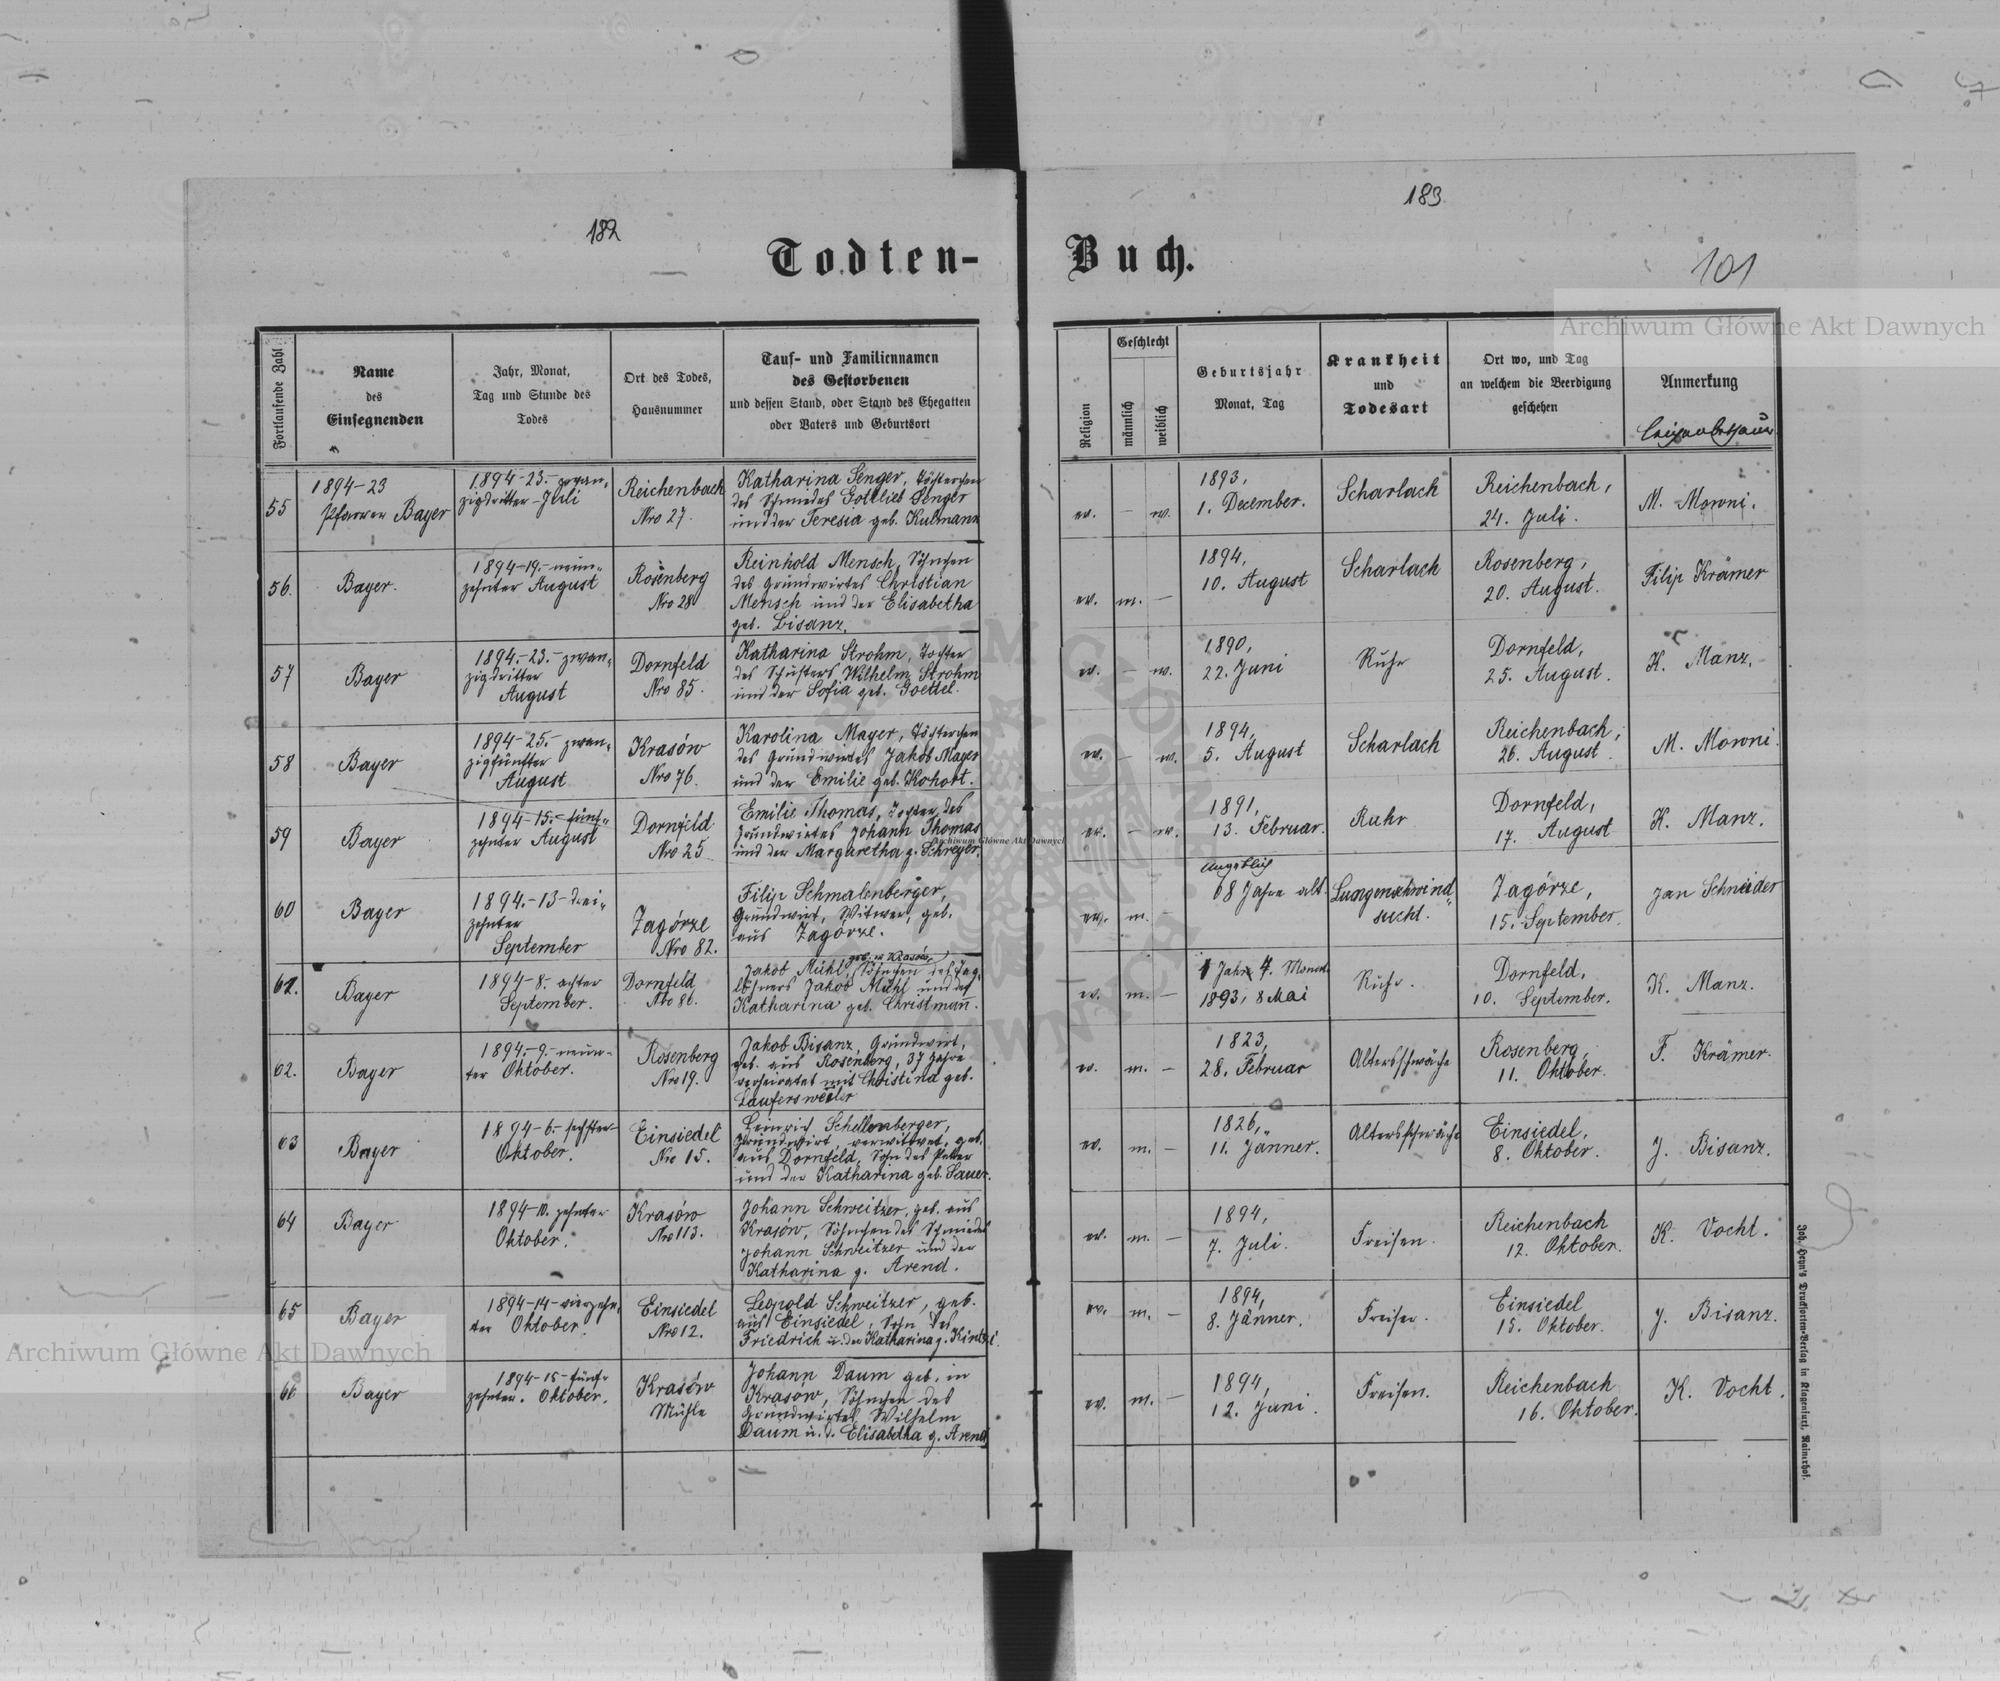 182
183
Todten-
Buch.
101
Archiwum Główne Akt Dawnych
Fortlaufende Zahl
Name
des
Einsegnenden
Jahr, Monat,
Tag und Stunde des
Todes
Ort des Todes,
Hausnummer
Tauf- und Familiennamen
des Gestorbenen
und dessen Stand, oder Stand des Ehegatten
oder Vaters und Geburtsort
Religion
Geschlecht
männlich
weiblich
Geburtsjahr
Monat, Tag
Krankheit
und
Todesart
Ort wo, und Tag
an welchem die Beerdigung
geschehen
Anmerkung
Leichenbeschauer
55
1894-23
Pfarrer Bayer
1894-23.-zwan-
zigdritter-Juli
Reichenbach
Nro 27.
Katharina Senger, Töchterchen
des Schmiedes Gottlieb Senger
und der Teresia geb. Kulmann
ev. — w.
1893,
1. December.
Scharlach
Reichenbach,
24. Juli.
M. Moroni.
56.
Bayer.
1894-19.-neun-
zehnter August
Rosenberg
Nro 28
Reinhold Mensch, Söhnchen
des Grundwirtes Christian
Mensch und der Elisabetha
geb. Bisanz.
ev. m. —
1894,
10. August
Scharlach
Rosenberg,
20. August.
Filip Krämer
57
Bayer
1894.-23.-zwan-
zigdritter
August
Dornfeld
Nro 85.
Katharina Strohm, Tochter
des Schusters Wilhelm Strohm
und der Sofia geb. Goettel.
ev. — w.
1890,
22. Juni
Ruhr
Dornfeld,
25. August.
K. Manz.
58
Bayer
1894-25.-zwan-
zigfünfter
August
Krasów
Nro 76.
Karolina Mayer, Töchterchen
des Grundwirtes Jakob Mayer
und der Emilie geb. Kohort.
ev. — w.
1894,
5. August
Scharlach
Reichenbach,
26. August.
M. Moroni.
59
Bayer
1894-15.-fünf-
zehnter August
Dornfeld
Nro 25
Emilie Thomas, Tochter des
Grundwirtes Johann Thomas
und der Margaretha g. Schreyer.
ev. — w.
1891,
13. Februar.
Ruhr
Dornfeld,
17. August
K. Manz.
60
Bayer
1894.-13-drei-
zehnter
September
Zagórze
Nro 82.
Filip Schmalenberger,
Grundwirt, Witwer, geb.
aus Zagórze.
ev. m. —
angeblich
68 Jahre alt.
Lungenschwind-
sucht.
Zagórze,
15. September.
Jan Schneider
61.
Bayer
1894-8.-achter
September.
Dornfeld
Nro 86.
geb. in Krasów,
Jakob Mühl, Söhnchen des Tag-
löhners Jakob Mühl und der
Katharina geb. Christmann.
ev. m. —
1 Jahr 4. Monat
1893, 8 Mai
Ruhr.
Dornfeld,
10. September.
K. Manz.
62.
Bayer
1894.-9.-neun-
ter Oktober.
Rosenberg
Nro 19.
Jakob Bisanz, Grundwirt,
geb. aus Rosenberg, 37 Jahre
verheiratet mit Christina geb.
Laufersweiler
ev. m. —
1823,
28. Februar
Altersschwäche
Rosenberg,
11. Oktober.
F. Krämer.
63
Bayer
1894-6.-sechster
Oktober.
Einsiedel
Nro 15.
Heinrich Schellenberger,
Grundwirt, verwitwet, geb.
aus Dornfeld, Sohn des Peter
und der Katharina geb. Sauer.
ev. m. —
1826,
11. Jänner.
Altersschwäche
Einsiedel,
8. Oktober.
J. Bisanz.
64
Bayer
1894-10. zehnter
Oktober.
Krasów
Nro 113.
Johann Schweitzer, geb. aus
Krasów, Söhnchen des Schmiedes
Johann Schweitzer und der
Katharina g. Arend.
ev. m. —
1894,
7. Juli.
Freisen.
Reichenbach
12. Oktober.
K. Vocht.
65
Bayer
1894-14-vierzehn-
ter Oktober.
Einsiedel
Nro 12.
Leopold Schweitzer, geb.
aus Einsiedel, Sohn des
Friedrich u. der Katharina g. Kintzi.
ev. m. —
1894,
8. Jänner.
Freisen.
Einsiedel
15. Oktober.
J. Bisanz.
66
Bayer
1894-15-fünf-
zehnter. Oktober.
Krasów
Mühle
Johann Daum geb. in
Krasów, Söhnchen des
Grundwirtes Wilhelm
Daum u. d. Elisabetha g. Arend
ev. m. —
1894,
12. Juni.
Freisen.
Reichenbach
16. Oktober.
K. Vocht.
Joh. Heyn's Drucksorten-Verlag in Klagenfurt, Rainerhof.
Archiwum Główne Akt Dawnych
Archiwum Główne Akt Dawnych